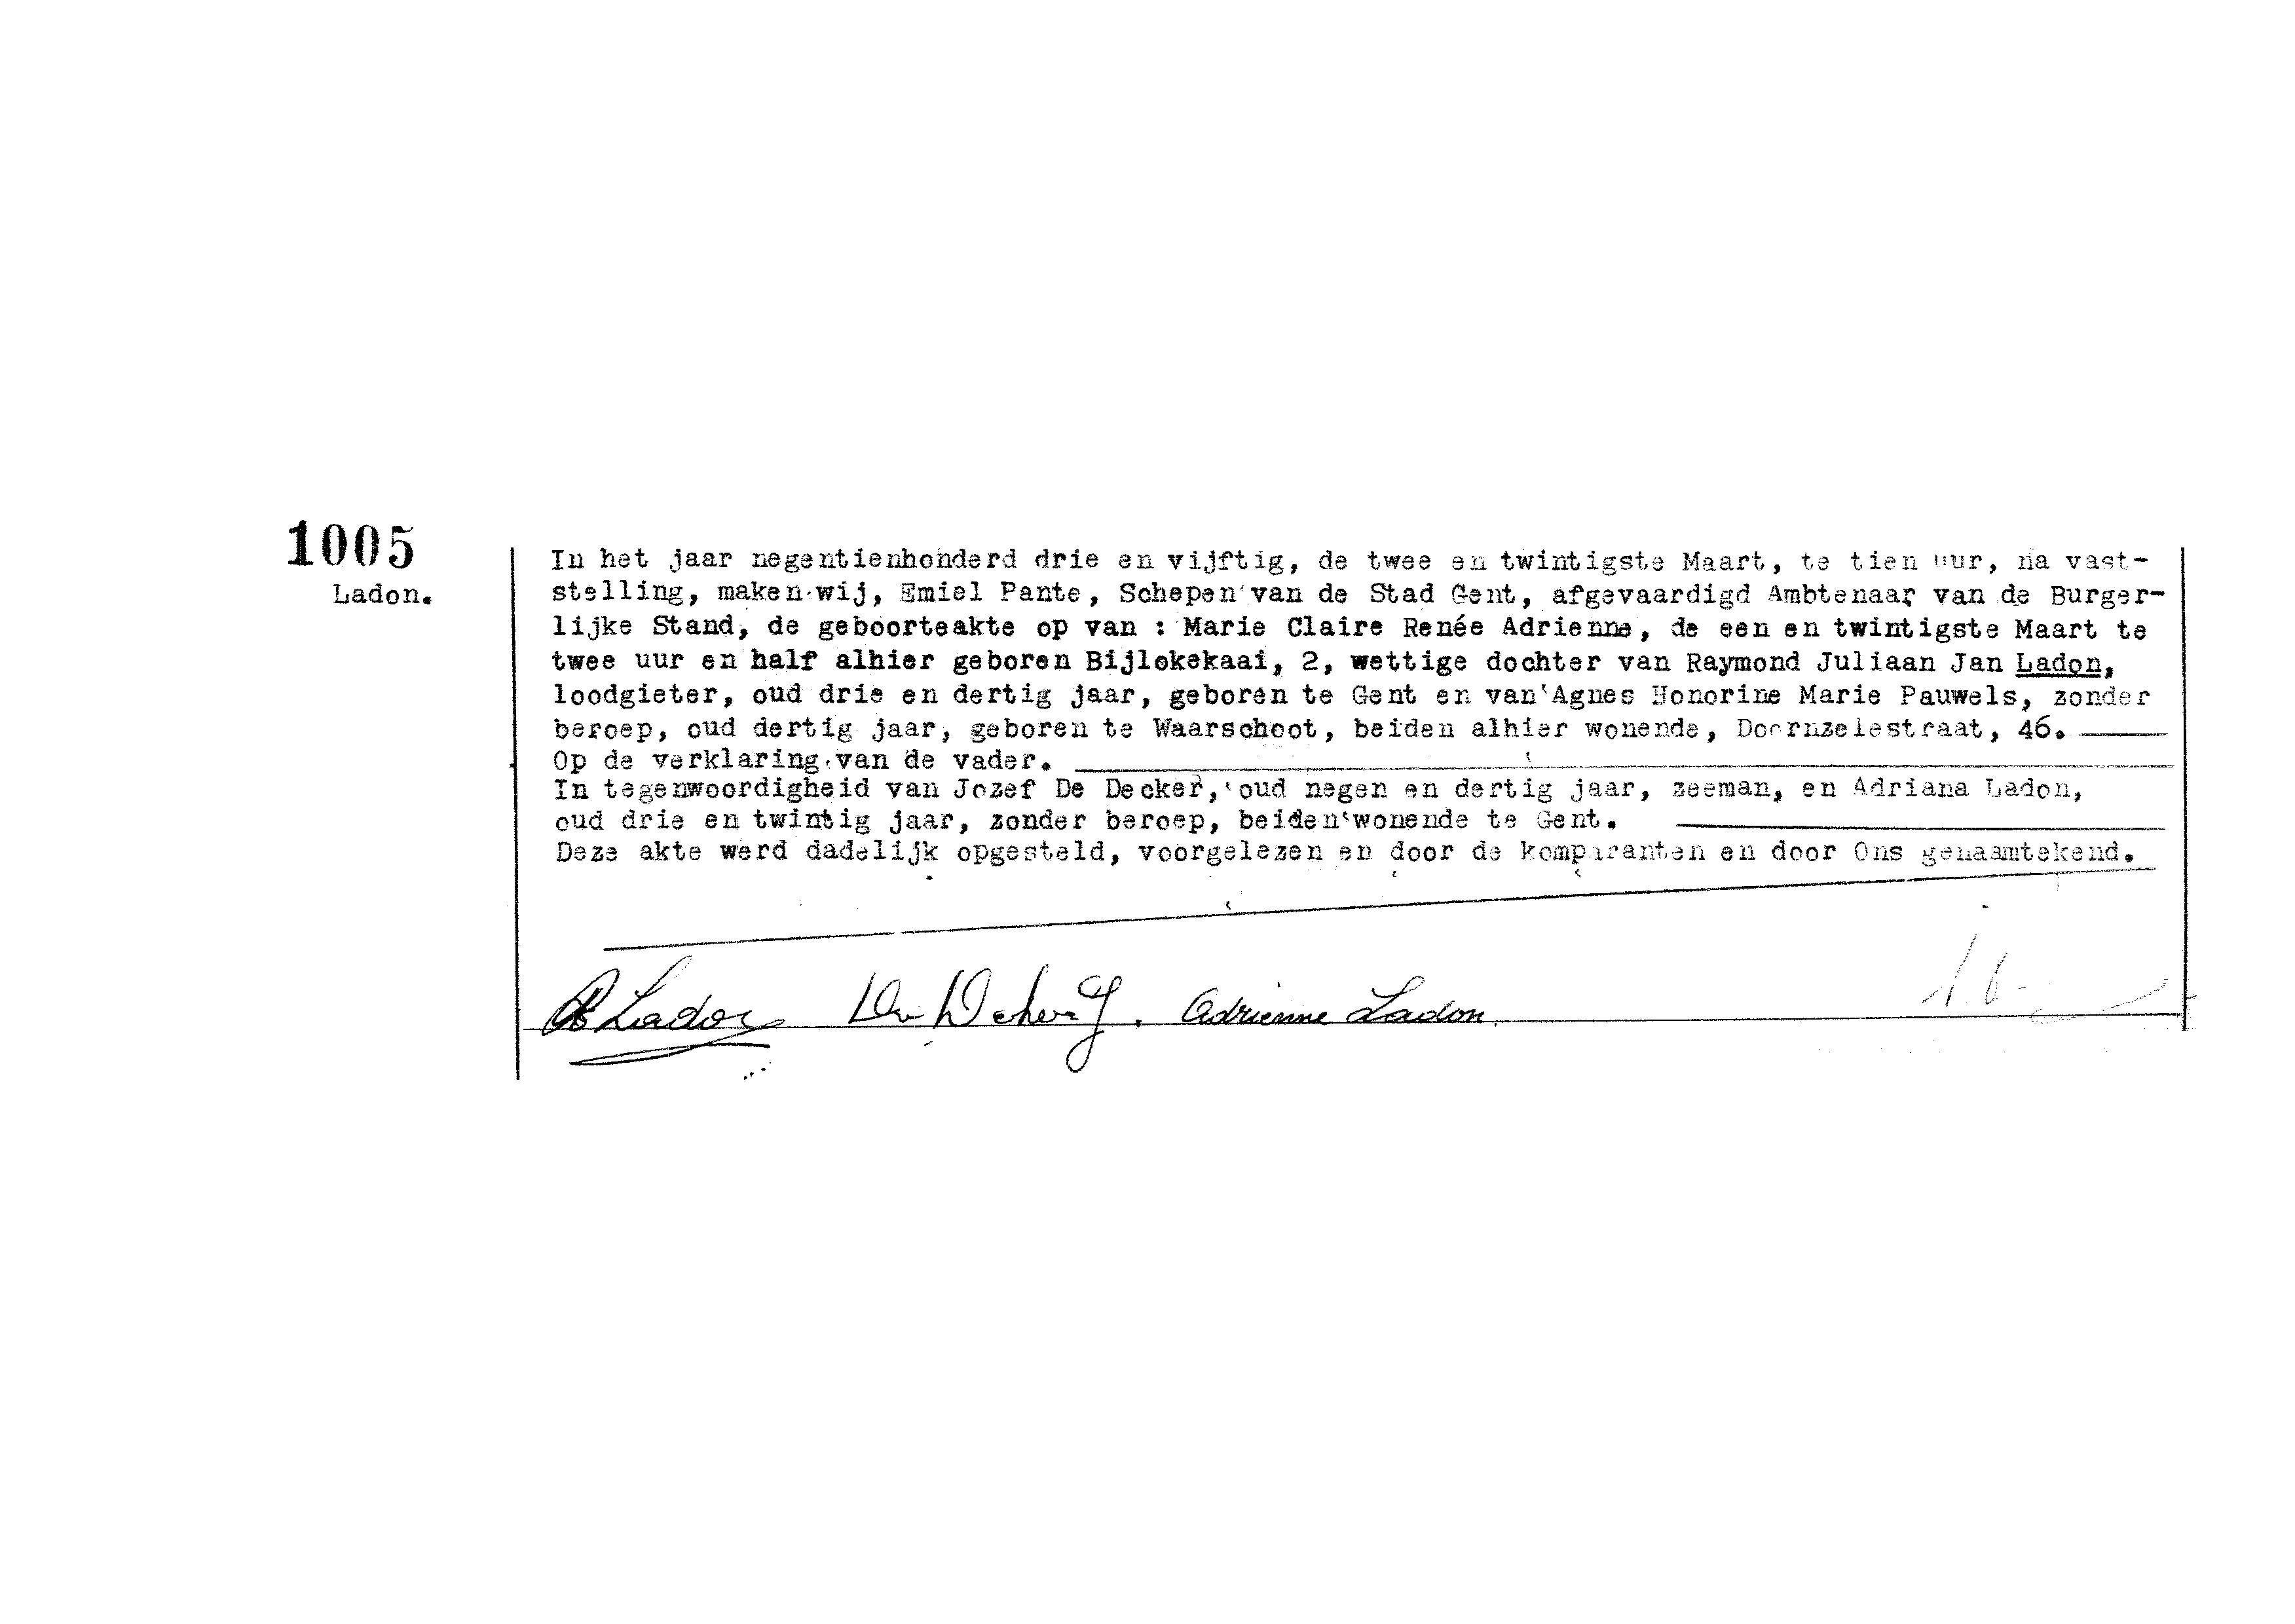 1005
Ladon.
In het jaar negentienhonderd drie en vijftig, de twee en twintigste Maart, te tien uur, na vast-
stelling, maken wij, Emiel Pante, Schepen van de Stad Gent, afgevaardigd Ambtenaar van de Burger-
lijke Stand, de geboorteakte op van : Marie Claire Renée Adrienne, de een en twintigste Maart te
twee uur en half alhier geboren Bijlokekaai, 2, wettige dochter van Raymond Juliaan Jan Ladon,
loodgieter, oud drie en dertig jaar, geboren te Gent en van Agnes Honorine Marie Pauwels, zonder
beroep, oud dertig jaar, geboren te Waarschoot, beiden alhier wonende, Doornzelestraat, 46.
Op de verklaring van de vader.
In tegenwoordigheid van Jozef De Decker, oud negen en dertig jaar, zeeman, en Adriana Ladon,
oud drie en twintig jaar, zonder beroep, beiden wonende te Gent.
Deze akte werd dadelijk opgesteld, voorgelezen en door de komparanten en door Ons genaamtekend.
Ladon Adrienne Ladon